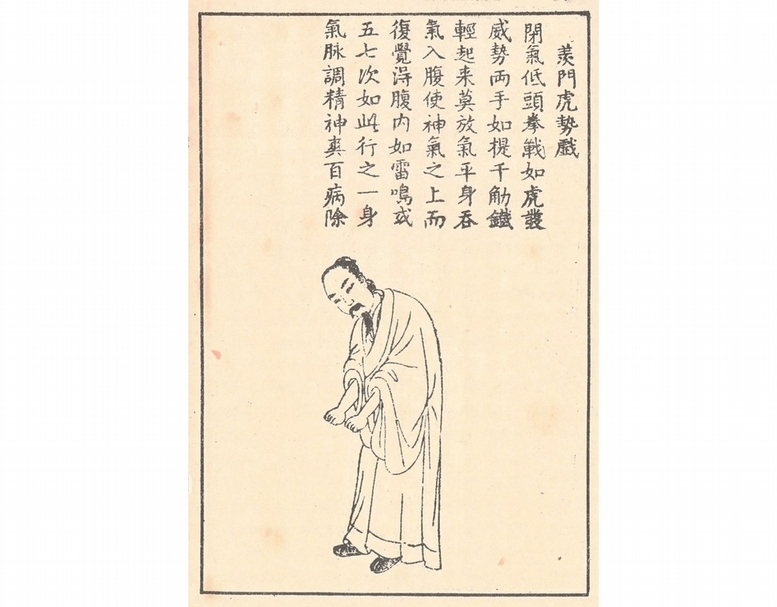 羨門虎勢戲
閉氣低頭拳戰如虎發
威勢两手如提千觔鐵
輕起来莫放氣平身吞
氣入腹使神氣之上而
復覺得腹内如雷鳴或
五七次如此行之一身
氣脉調精神爽百病除